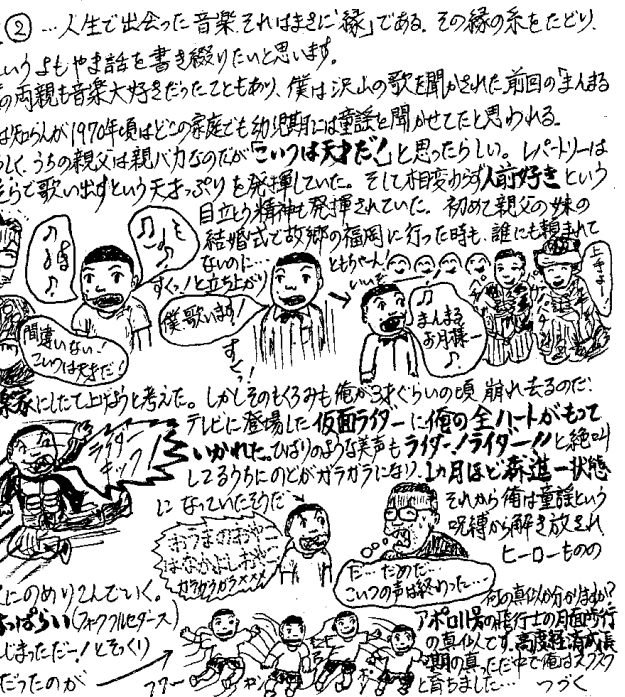 ② …人生で出会った音楽、それはまさに「縁」である。その縁の糸をたどり、
いうよもやま話を書き綴りたいと思います。
の両親も音楽大好きだったこともあり、僕は沢山の歌を聞かされた。前回の「まんまる
は知らんが1970年頃はどこの家庭でも幼児期には童謡を聞かせてたと思われる。
らしく、うちの親父は親バカなのだが「こいつは天才だ!」と思ったらしい。レパートリーは
そらで歌い出すという天才っぷりを発揮していた。そして相変わらず人前好きという
目立とう精神も発揮されていた。初めて親父の妹の
結婚式で故郷の福岡に行った時も、誰にも頼まれて
ないのに…
すくっ!と立ち上がり
ともちゃーん!
いいぞ
上手ー!
僕歌います!
すくっ!
♪
まんまる
お月様ー
♪
間違いない!
こいつは天才だ!
楽家にしたて上げようと考えた。しかしそのもくろみも俺が3才ぐらいの頃 崩れ去るのだ!
テレビに登場した仮面ライダーに俺の全ハートがもって
いかれた。ひばりのような美声もライダー!ライダー!!と絶叫
してるうちにのどがガラガラになり、1ヵ月ほど森進一状態
になっていたそうだ
ライダー
キック!
それから俺は童謡という
呪縛から解き放され
ヒーローものの
おつきのおやー
はながよしおやー
ガラガラガラ×××
だ…だめだ…
こいつの声は終わった…
にのめりこんでいく。
っぱらい(フォーククルセダース)
じまっただー!とそっくり
だったのが
ワワー
何の真似か分かりますか?
アポロ11号の飛行士の月面歩行
の真似です。高度経済成長
期の真っただ中で俺はスクスク
と育ちました… つづく